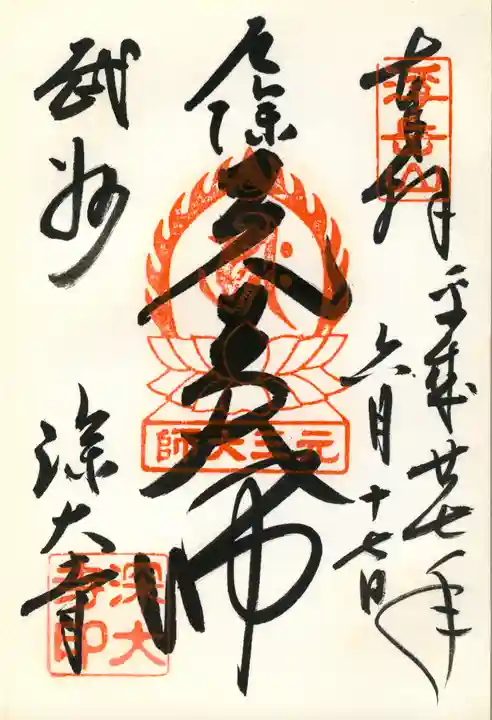 奉拝
浮岳山
平成廿七年
六月十七日
厄除元三大師
元三大師
武州
深大寺
深大寺印